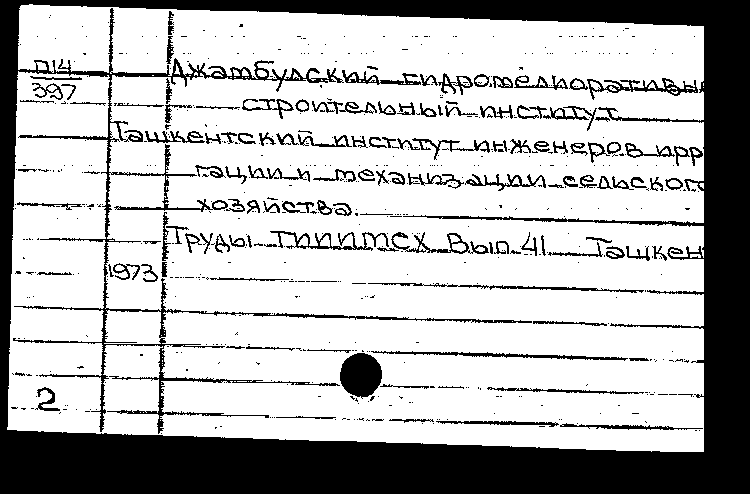 П14
397
Джамбулский гидромелиоративно
строительный институт
Ташкентский институт инженеров ирри
гации и механизации сельского
хозяйства.
Труды ТИИИМСХ Вып. 41 Ташкен
1973
2